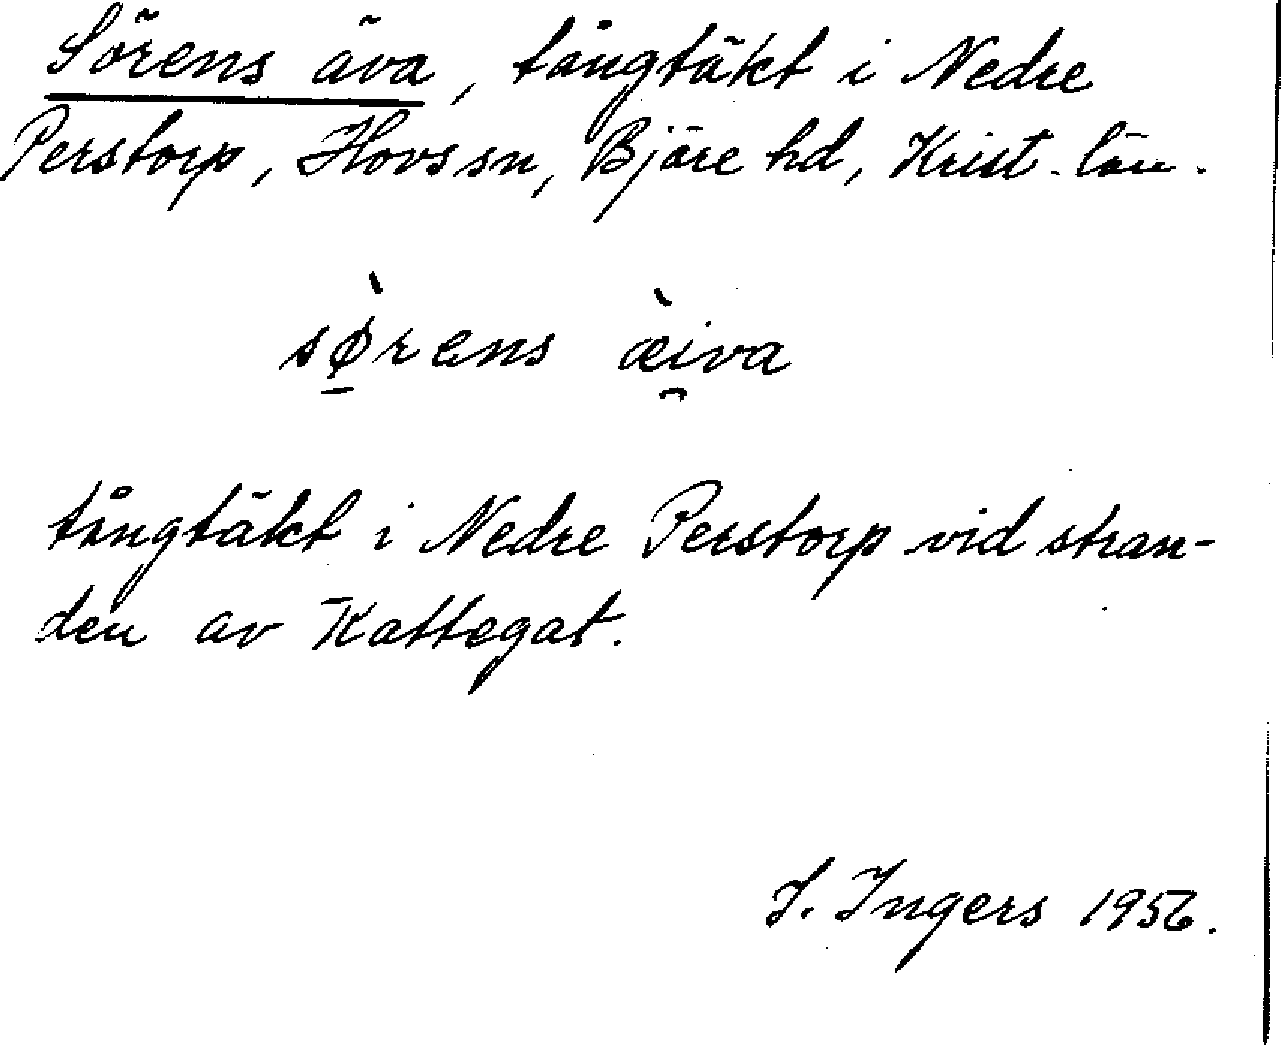 Sörens äva, tångtäkt i Nedre
Perstorp, Hovs sn, Bjäre hd, Krist. län.
sø̱̀rens æ̀i̯va
tångtäkt i Nedre Perstorp vid stran-
den av Kattegat.
I. Ingers 1956.